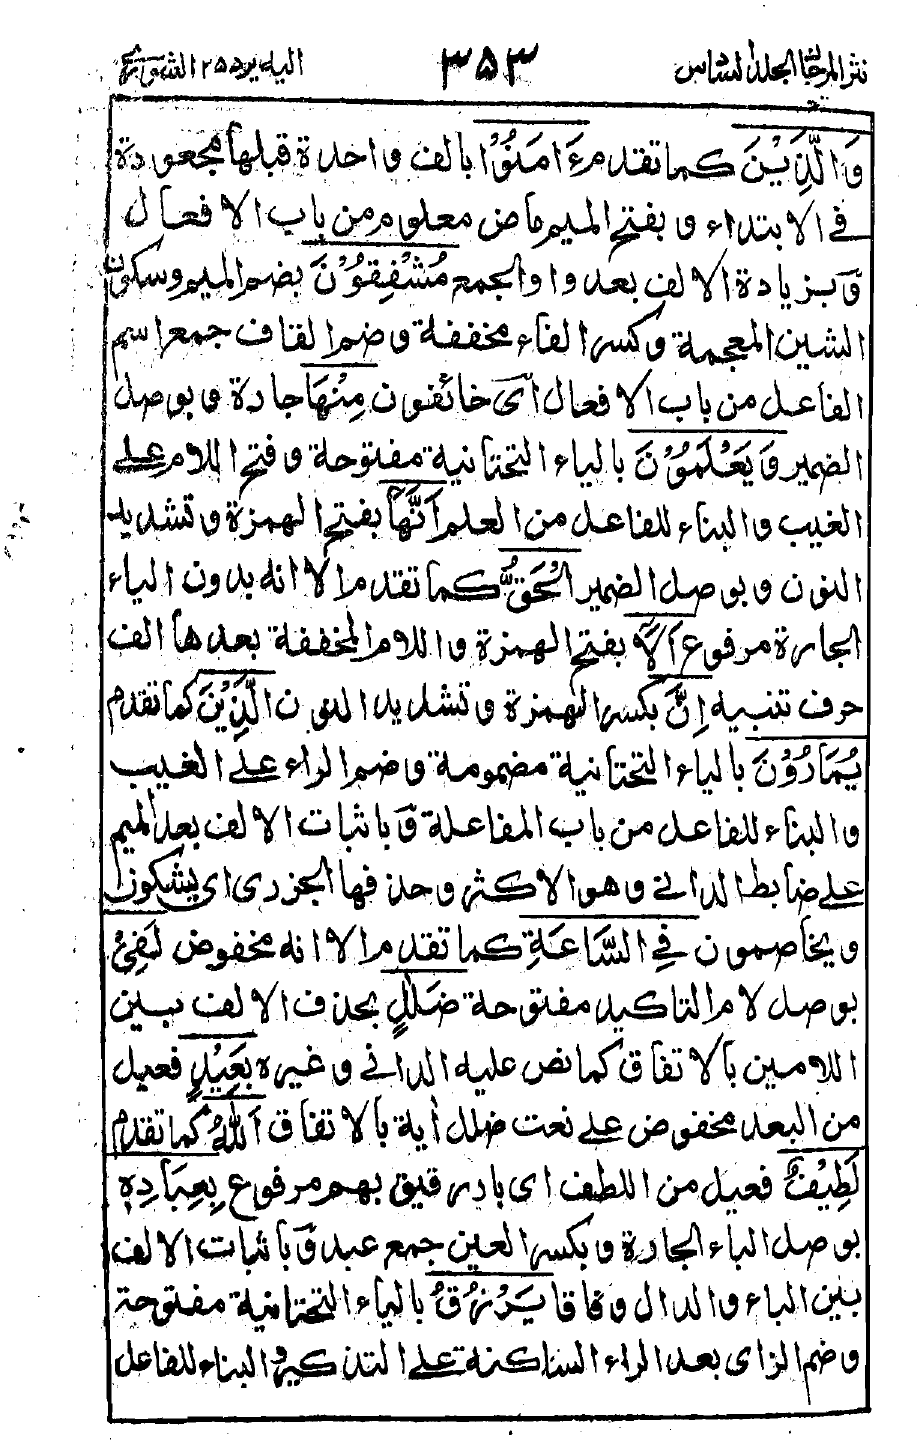 نثر المرجان الجلد السادس ٣٥٣ اليه يرد ٢٥ الشورى
وَالَّذِيْنَ كما تقدم ءَامَنُوْا بالف واحدة قبلها مجعودة
فى الابتداء و بفتح الميم ماض معلوم من باب الافعال
وَ بزيادة الالف بعد واو الجمع مُشْفِقُوْنَ بضم الميم وسكون
الشين المعجمة وكسر الفاء مخففة وضم القاف جمع اسم
الفاعل من باب الافعال اى خائفون مِنْهَا جادة وبوصل
الضمير وَيَعْلَمُوْنَ بالياء التحتانية مفتوحة وفتح اللام على
الغيب والبناء للفاعل من العلم اَنَّهَا بفتح الهمزة وتشديد
النون وبوصل الضمير الْحَقُّ كما تقدم الا انه بدون الياء
الجارة مرفوع اَلَا بفتح الهمزة واللام المخففة بعدها الف
حرف تنبيه اِنَّ بكسر الهمزة وتشديد النون الَّذِيْنَ كما تقدم
يُمَارُوْنَ بالياء التحتانية مضمومة وضم الراء على الغيب
والبناء للفاعل من باب المفاعلة وَ باثبات الالف بعد الميم
على ضابط الدانى وهو الاكثر وحذفها الجزرى اى يشكون
ويخاصمون فِى السَّاعَةِ كما تقدم الا انه مخفوض لَفِىْ
بوصل لام التاكيد مفتوحة ضَلٰلٍ بحذف الالف بين
اللامين بالاتفاق كما نص عليه الدانى وغيره بَعِيْدٍ فعيل
من البعد مخفوض على نعت ضلل أية بالاتفاق اَللّٰهُ كما تقدم
لَطِيْفٌ فعيل من اللطف اى بار رفيق بهم مرفوع بِعِبَادِهٖ
بوصل الباء الجارة وبكسر العين جمع عبد وَ باثبات الالف
بين الباء والدال وفاقا يَرْزُقُ بالياء التحتانية مفتوحة
وضم الزاى بعد الراء الساكنة على التذكير والبناء للفاعل